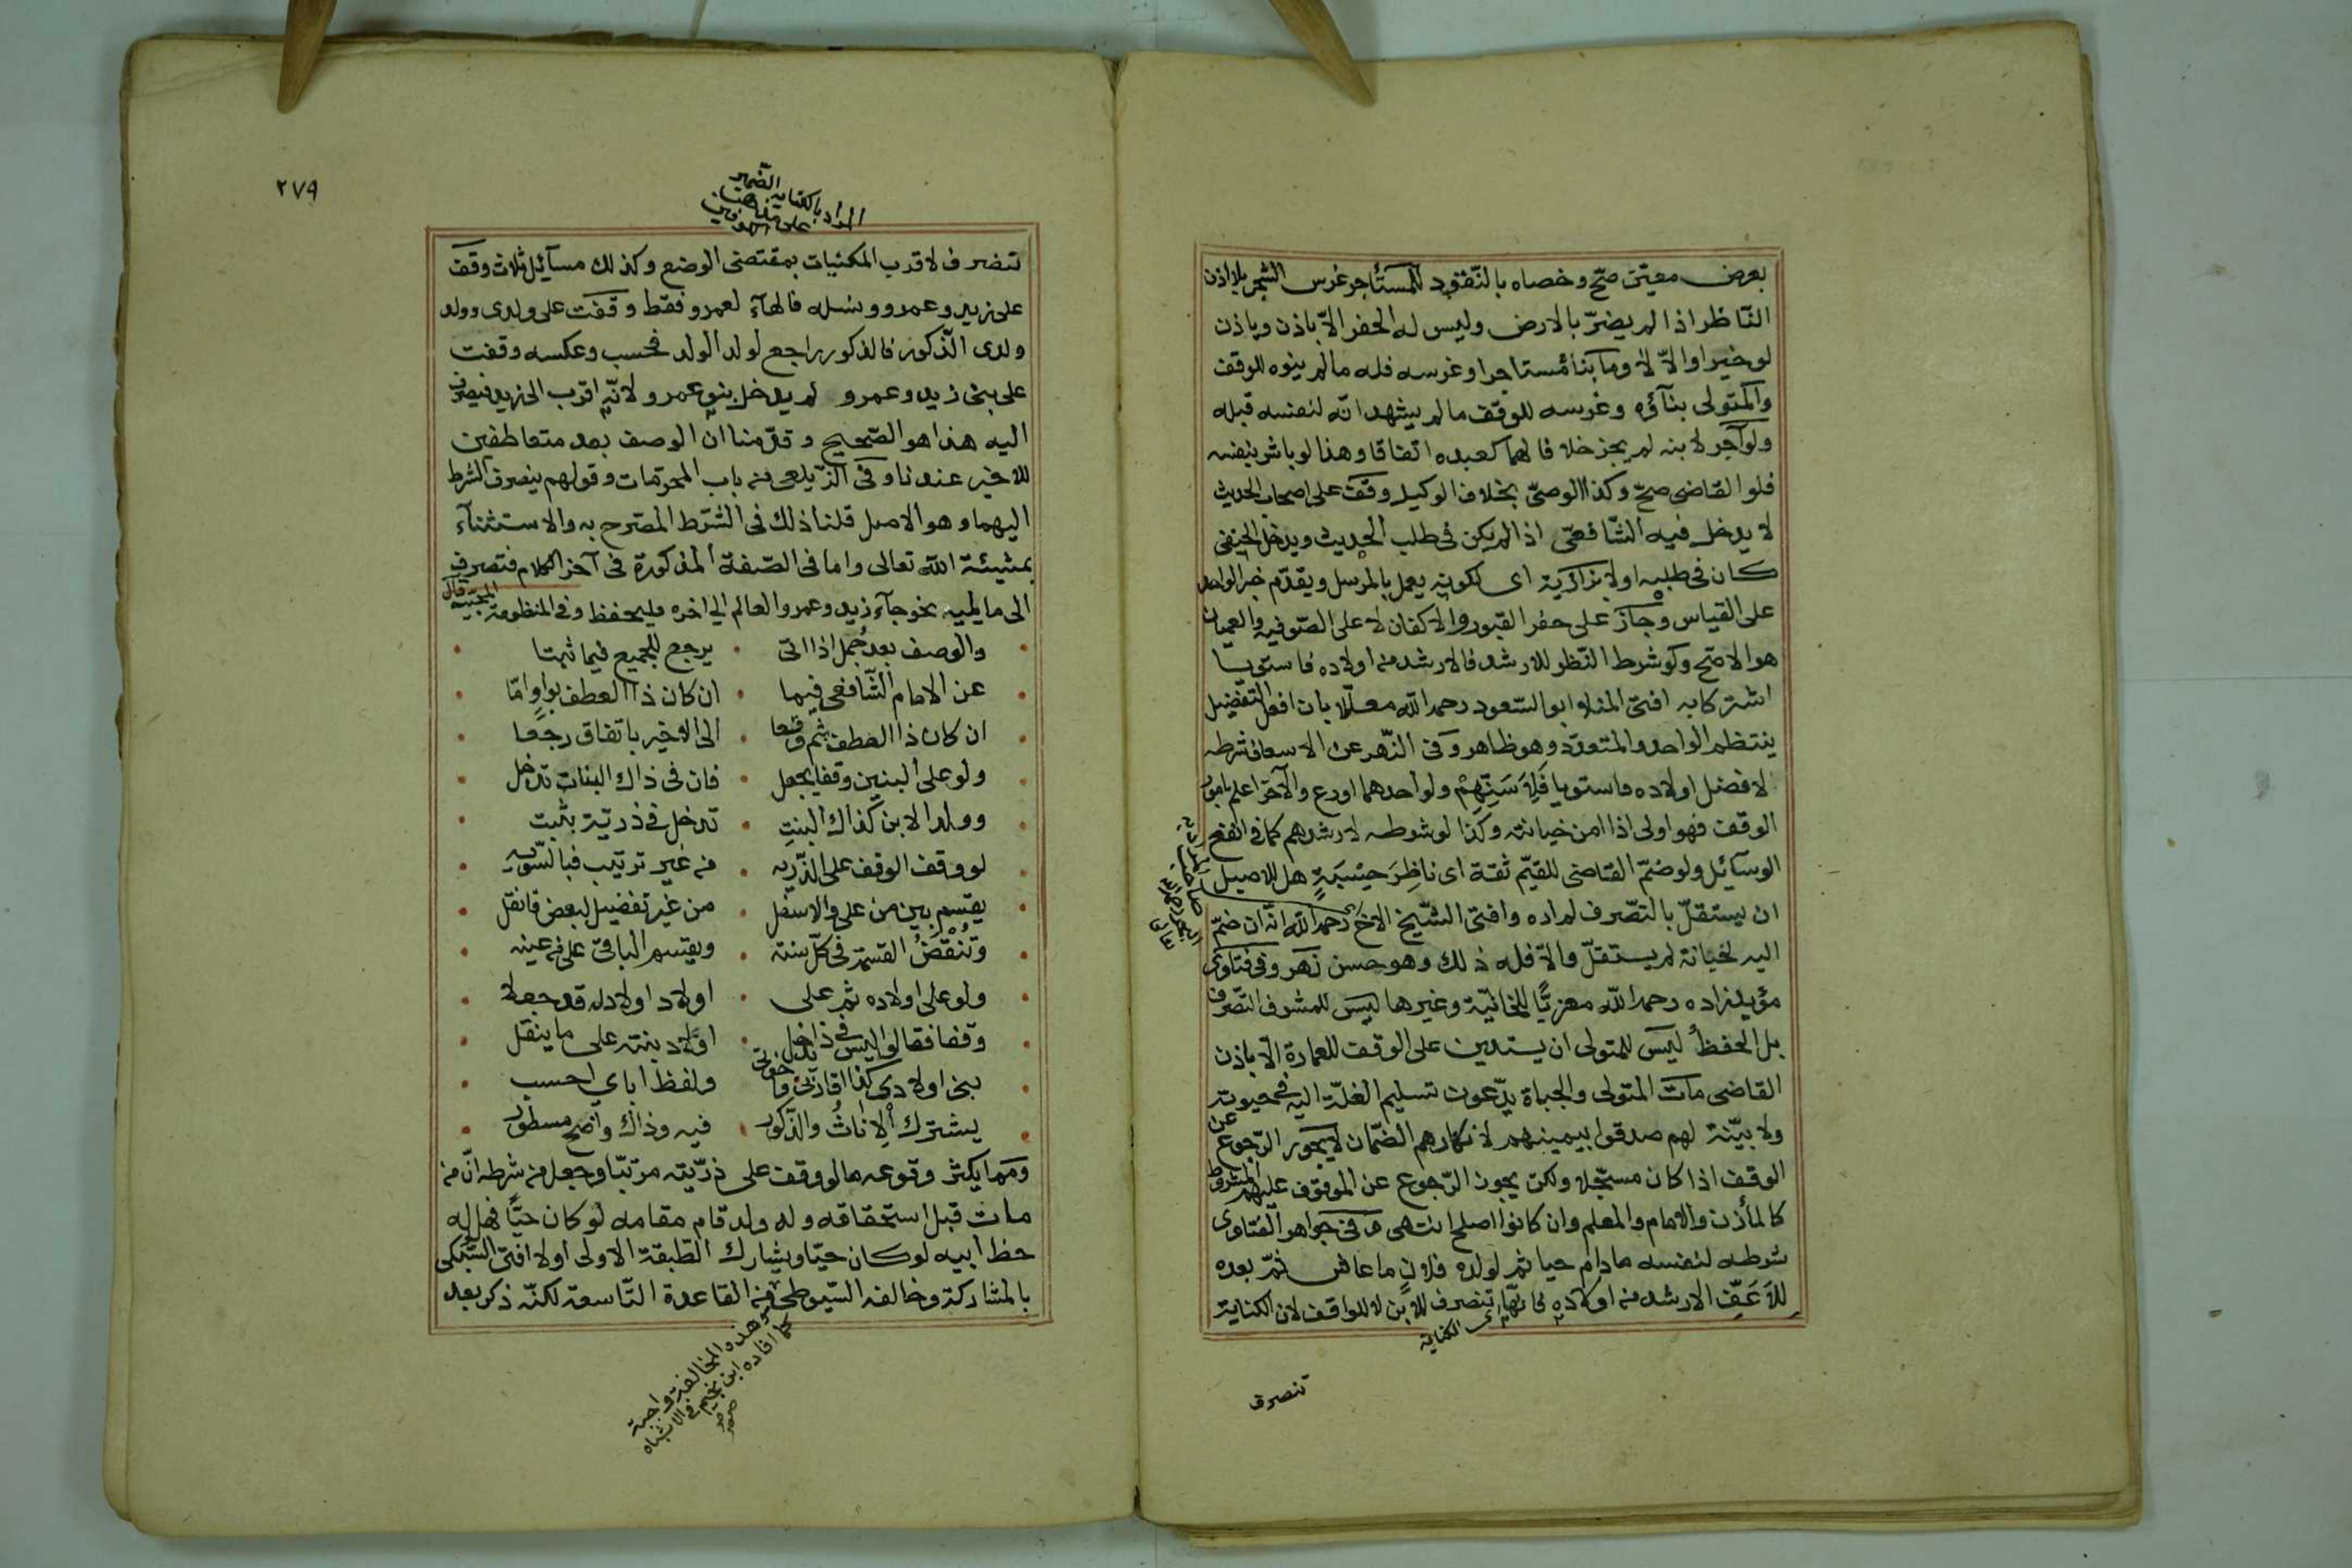 بعرض معيّن صحّ وخصاه بالنّقود للمستأجر غرس الشجر بلا اذن
النّاظر اذا لم يضرّ بالارض وليس له الحفر الاّ باذن وياذن
لو خيرا والاّ لا وما بناه مستاجر او غرسه فله ما لم ينوه للوقف
والمتولى بناؤه وغرسه للوقف ما لم يشهد انّه لنفسه قبله
ولو آجر لابنه لم يجز خلافا لهما كعبده اتفاقا وهذا لو باشر بنفسه
فلو القاضى صحّ وكذا الوصىّ بخلاف الوكيل وقف على اصحاب الحديث
لا يدخل فيه الشّافعىّ اذا لم يكن فى طلب الحديث ويدخل الحنفى
كان فى طلبه اولا بزازية اى لكونه يعمل بالمرسل ويقدّم خبر الواحد
على القياس وجاز على حفر القبور والاكفان لا على الصّوفية والعميان
هو الاصح ولو شرط النّظر للارشد فالارشد من اولاده فاستويا
اشتركا به افتى المنلا ابو السّعود رحمه الله معلّلا بان افعل التّفضيل
ينتظم الواحد والمتعدّد وهو ظاهر وفى النّهر عن الاسعاف شرطه
لافضل اولاده فاستويا فَلِاَسَنِّهِمْ ولو احدهما اورع والآخر اعلم بامور
الوقف فهو اولى اذا امن خيانته وكذا لو شرطه لارشدهم كما فى انفع
الوسآئل ولو ضمّ القاضى للقيّم ثقة اى ناظِرَ حِسْبَةٍ هل للاصيل
ان يستقلّ بالتصّرف لم اره وافتى الشّيخ الاخ رحمه الله انّه ان ضمّ
اليه لخيانة لم يستقلّ والاّ فله ذلك وهو حسن نهر وفى فتاوى
مؤيد زاده رحمه الله معزيًّا للخانيّة وغيرها ليس للمشرف التّصرف
بل الحفظُ ليس للمتولى ان يستدين على الوقف للعمارة الّا باذن
القاضى مات المتولى والجباة يدّعون تسليم الغلّة اليه فى حيوته
ولا بيّنة لهم صدقوا بيمينهم لانكارهم الضّمان لا يجوز الرّجوع عن
الوقف اذا كان مسجّلا ولكن يجوز الرّجوع عن الموقوف عليهم المشروط
كالمأذن والامام والمعلم وان كانوا اصلح انتهى وفى جواهر الفتاوى
شرطه لنفسه ما دام حيا ثم لولده فلانٍ ما عاش ثمّ بعده
للاَعَفِّ الارشد من اولاده فالهاء تنصرف للابن لا للواقف لان الكناية
اى الكناية
صاحب البحر رحمه الله تعالى
تنصرف
٢٧٩
المراد بالكناية الضمير
تنصرف لاقرب المكنيات بمقتضى الوضع وكذلك مسآئل ثلاث وقف
على زيد وعمرو ونسله فالهآء لعمرو فقط وقفت على ولدى وولد
ولدى الذّكور فالذكور راجع لولد الولد فحسب وعكسه وقفت
على بنى زيد وعمرو لم يدخل بنو عمرو لانّه اقرب الى زيد فيصرف
اليه هذا هو الصّحيح وقدّمنا ان الوصف بعد متعاطفين
للاخير عندنا وفى الزّيلعى من باب المحرّمات وقولهم ينصرف الشرط
اليهما وهو الاصل قلنا ذلك فى الشّرط المصرح به والاستثنآء
بمشيئة الله تعالى واما فى الصّفة المذكورة فى آخر الكلام فتصرف
الى ما يليه نحو جآء زيد وعمرو العالم الى اخره فليحفظ وفى المنظومة المحبّيه قال
والوصف بعد جُمل اذا اتى • يرجع للجميع فيما ثبتا
عن الامام الشّافعى فيما • ان كان ذا العطف بواوٍ امّا
ان كان ذا العطف بثم وقعا • الى الاخير باتفاق رجعا
ولو على البنين وقفا يجعل • فان فى ذاك البنات تدخل
وولد الابن كذاك البنتِ • تدخل فى ذريّة بثبت
لو وقف الوقف على الذّريه • من غير ترتيب فبالسّويه
يقسم بين من علا والاسفل • من غير تفضيل لبعض فانقل
وتُنْقَضُ القسمة فى كلّ سنة • ويقسم الباقى على من عينه
ولو على اولاده ثم على • اولاد اولاد له قد جعلا
وقفا فقالوا ليس فى ذا دخل • اولاد بنته على ما ينقل
بنى اولادى كذا اقاربى واخوتى • ولفظ اباىِ احسب
يشترك الاناثُ والذّكور • فيه وذاك واضح مسطور
ومما يكثر وقوعه ما لو وقف على ذرّيته مرتبّا وجعل من شرطه انّ من
مات قبل استحقاقه وله ولد قام مقامه لو كان حيًّا فهل له
حظ ابيه لو كان حيّا ويشارك الطّبقة الاولى اولا افتى السّبكى
بالمشاركة وخالفه السّيوطى من القاعدة التّاسعة لكنّه ذكر بعد
وهذه المخالفة واجبة
كما افاده ابن نجيم فى الاشباه